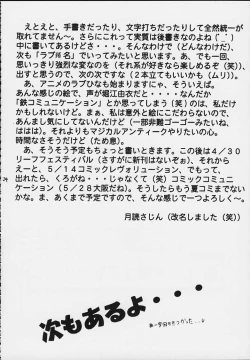 えとえと、手書きだったり、文字打ちだったりして全然統一が
取れてませ〜ん。さらにこれって実質は後書きなのね(＾_＾)
中に書いてあるけどさ・・・。そんなわけで（どんなわけだ）、
次も「ラブ外伝」でいってみたいと思います。あ、でも一回、
思いっきり強烈な変なのを（それ系が好きなら楽しめるぞ（笑））、
出すと思うので、次の次ですな（２本立てもいいかも（ムリ））。
あ、アニメのラブひなも始まりますにゃ、そういえば。
あんな感じの絵で、声が堀江由衣・・・だと、なんだか
「鉄コミュニケーション」とか思ってしまう（笑）のは、私だけ
かもしれないけど。まぁ、私は意外と絵にこだわらないので、
あんまし気にしてないんだけど（一部非難ゴーゴーみたいね、
ははは）。それよりもマジカルアンティークやりたいの心。
時間なさそうだけど（ため息）。
あ、そうそう予定もちょっと書いときます。この後は４／３０
リーフフェスティバル（さすがに新刊はないぞぉ）、それから
えーと、５／１４コミックレヴォリューション、でもって、
出れたら、くろがね・・・じゃなくて（笑）コミックコミュニ
ケーション（５／２８大阪だね）。そうしたらもう夏コミまでな
いかな。ま、あくまで予定ですので、そんな感じで一つよろしく〜。
月読さじん（改名しました（笑））
次もあるよ・・・